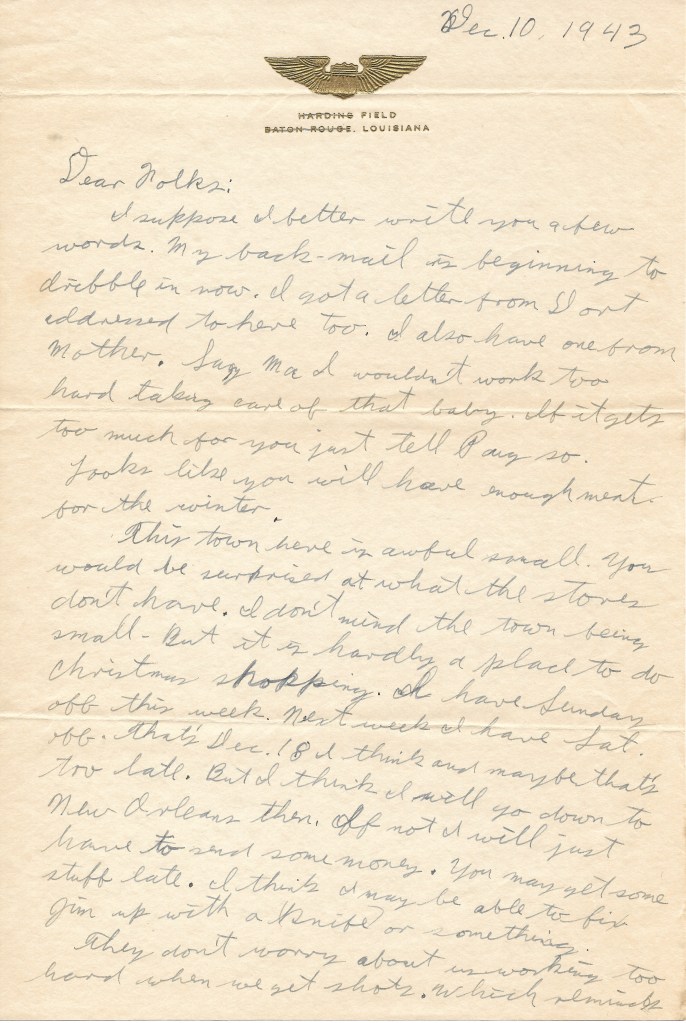 Dec. 10, 1943
HARDING FIELD
BATON ROUGE, LOUISIANA
Dear Folks:
I suppose I better write you a few
words. My back-mail is beginning to
dribble in now. I got a letter from Dort
addressed to here too. I also have one from
Mother. Say Ma I wouldn't work too
hard taking care of that baby. If it gets
too much for you just tell Pauy so.
Looks like you will have enough meat
for the winter.
This town here is awful small. You
would be surprised at what the stores
don't have. I don't mind the town being
small - But it is hardly a place to do
Christmas shopping. I have Sunday
off this week. Next week I have Sat.
off. that's Dec. 18 I think and maybe that's
too late. But I think I will go down to
New Orleans then. If not I will just
have to send some money. You may get some
stuff late. I think I may be able to fix
Jim up with a knife or something.
They don't worry about us working too
hard when we get shots. Which reminds